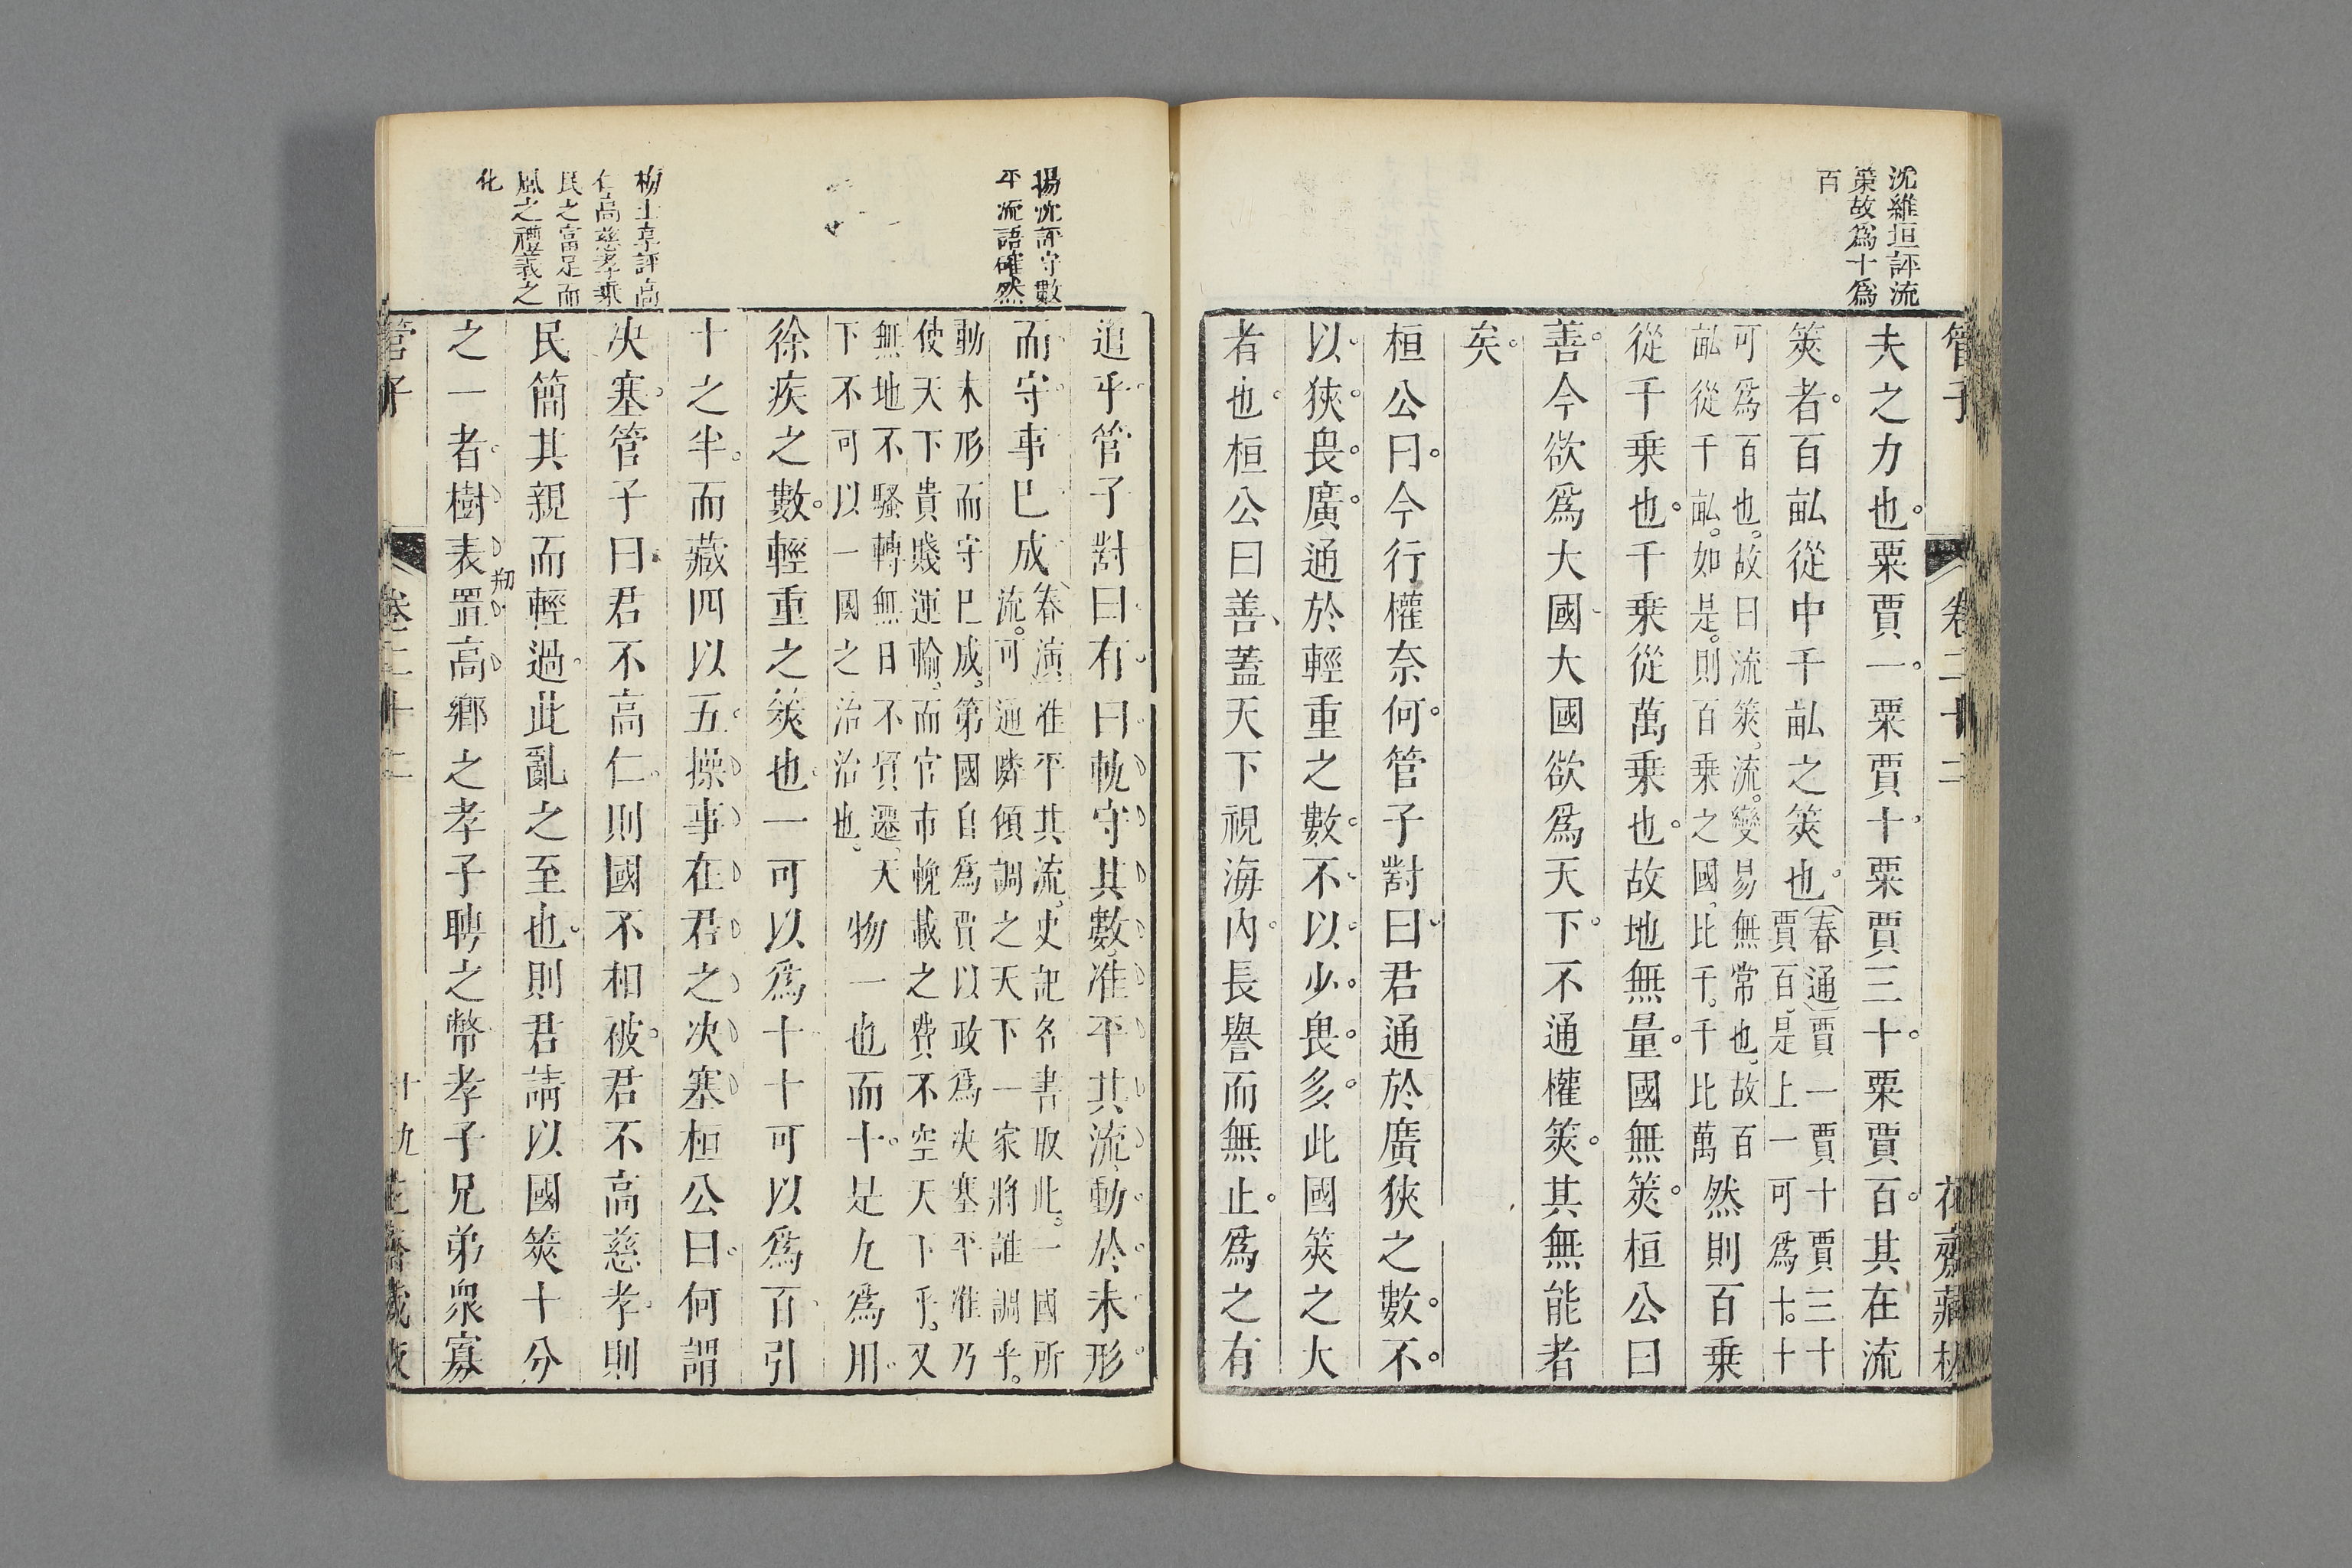 沈維垣評流
筴故爲十爲
百
管子
卷二十二
花齋藏板
夫之力也。粟賈一。粟賈十。粟賈三十。粟賈百。其在流
筴者。百畝從中千畝之筴也。(春通)賈一賈十賈三十
賈百是上一可爲十。十
可爲百也。故曰流筴。流。變易無常也。故百
畝從千畝。如是。則百乘之國。比千。千比萬
然則百乘
從千乘也。千乘從萬乘也。故地無量。國無筴。桓公曰
善。今欲爲大國大國欲爲天下。不通權筴。其無能者
矣。
桓公曰。今行權奈何。管子對曰。君通於廣狹之數。不。
以狹。畏。廣。通於輕重之數。不以少。畏。多。此國筴之大
者也。桓公曰善、蓋天下視海內。長譽而無止。爲之有
楊沈評守數
平流語確然
道乎管子對曰有。曰軌守其數。准平其流動於未形
而守事已成(春演)准平其流。史記名書取此。一國所
流。可通隣傾調之天下一家將誰調乎。
動未形而守已成。第國自爲賈以政爲决塞平准乃
使天下貴賤運輸、而官市輓載之費不空天下乎。又
無地不騷轉無日不貿遷、天
下不可以一國之治治也。
物一也而十。是九爲用。
徐疾之數。輕重之筴也。一可以爲十十可以爲百。引
十之半。而藏四以五。操事在君之决塞桓公曰。何謂
决塞。管子曰君不高仁。則國不相被。君不高慈孝。則
民簡其親而輕過。此亂之至也。則君請以國筴十分
之一者。樹表置高鄉之孝子聘之幣。孝子兄弟衆寡
物
柳士享評高
仁高慈孝乘
民之富足而
風之禮義之
化
管子
卷二十二
十九
花齋藏板